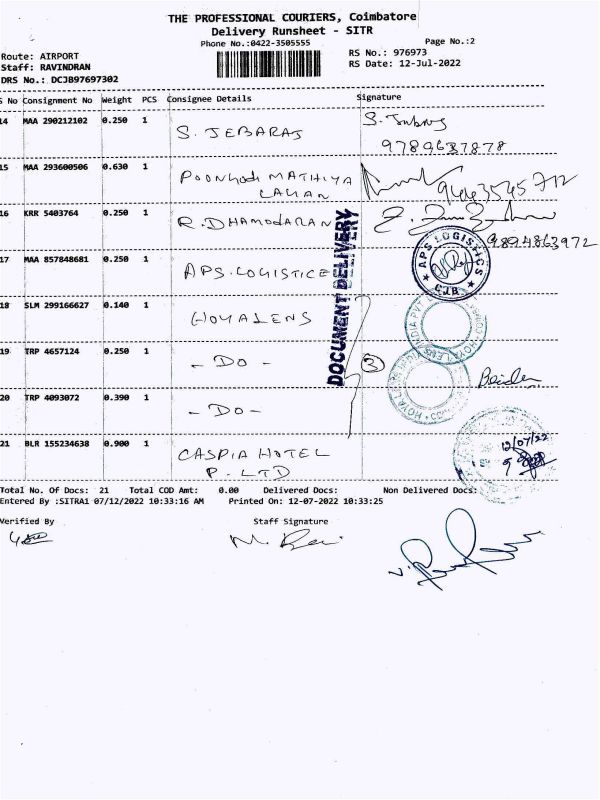 THE PROFESSIONAL COURIERS, Coimbatore
Delivery Runsheet - SITR
Phone No.:0422-3505555
Page No.:2
Route: AIRPORT
RS No.: 976973
Staff: RAVINDRAN
RS Date: 12-Jul-2022
DRS No.: DCJB97697302
S No Consignment No Weight PCS Consignee Details Signature
14 MAA 290212102 0.250 1 S. JEBARAJ
9789637878
15 MAA 293600506 0.630 1 POONGODI MATHIYA
LAGAN
9443545712
16 KRR 5403764 0.250 1 R. DHAMODARAN
9894863972
17 MAA 857848681 0.250 1 APS. LOGISTICE
APS LOGISTICS
CJB
DOCUMENT DELIVERY
18 SLM 299166627 0.140 1 HOYALENS
19 TRP 4657124 0.250 1 - DO -
3
20 TRP 4093072 0.390 1 - DO -
21 BLR 155234638 0.900 1 CASPIA HOTEL
P. LTD
12/07/22
Total No. Of Docs: 21 Total COD Amt: 0.00 Delivered Docs: Non Delivered Docs:
Entered By :SITRA1 07/12/2022 10:33:16 AM Printed On: 12-07-2022 10:33:25
Verified By Staff Signature